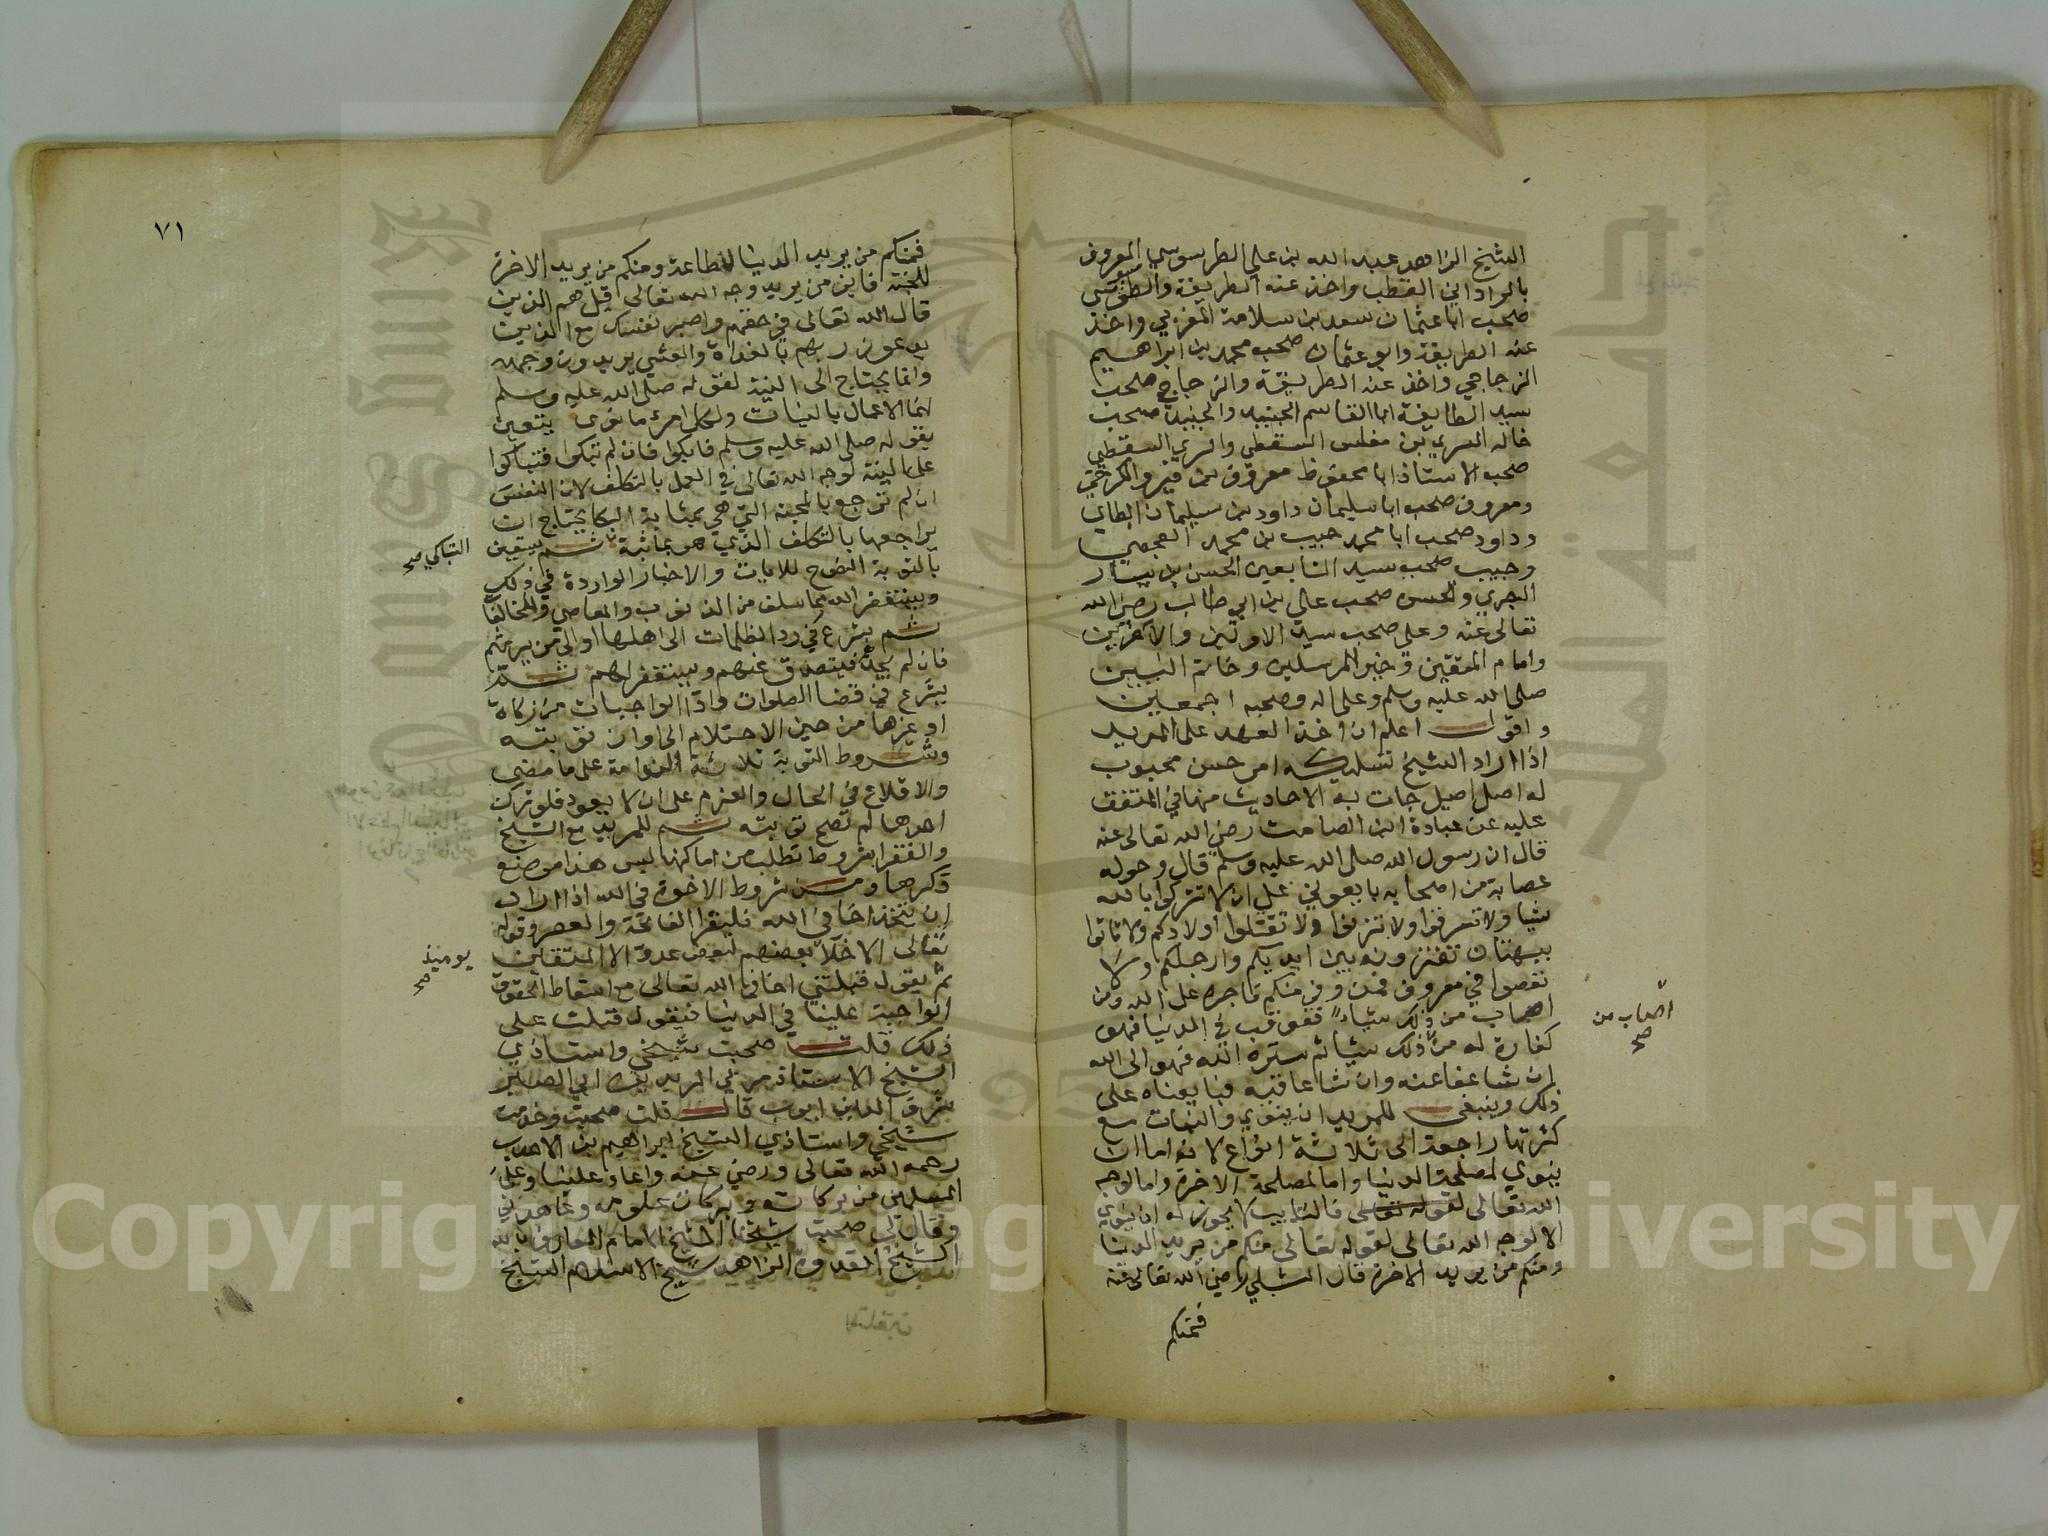 الشيخ الزاهد عبد الله بن علي الطرسوسي المعروف
القطب واخذ عنه الطريقة
صحب ابا عثمان سعد بن سلامة المغربي واخذ
عنه الطريقة وابو عثمان صحب محمد بن ابراهيم
الزجاجي واخذ عنه الطريقة والزجاجي صحب
سيد الطايفة ابا القاسم الجنيد والجنيد صحب
خاله السري بن مغلس السقطي والسري السقطي
صحب الاستاذ ابا محفوظ معروف بن فيروز الكرخي
ومعروف صحب ابا سليمان داود بن سليمان الطاي
وداود صحب ابا محمد حبيب بن محمد العجمي
وحبيب صحب سيد التابعين الحسن بن يسار
البصري والحسن صحب علي بن ابي طالب رضي الله
تعالى عنه وعلي صحب سيد الاولين والاخرين
وامام المتقين وخير المرسلين وخاتم النبيين
صلى الله عليه وسلم وعلى اله وصحبه اجمعين
واقول اعلم ان اخذ العهد على المريد
اذا اراد الشيخ تسليكه امر حسن محبوب
له اصل اصيل جات به الاحاديث منها في المتفق
عليه عن عبادة ابن الصامت رضي الله تعالى عنه
قال ان رسول الله صلى الله عليه وسلم قال وحوله
عصابة من اصحابه بايعوني على ان لا تشركوا بالله
شيا ولا تسرقوا ولا تزنوا ولا تقتلوا اولادكم ولا تاتوا
ببهتان تفترونه بين ايديكم وارجلكم ولا
تعصوا في معروف فمن وفي منكم فاجره على الله ومن
اصاب من ذلك شياء فعوقب في الدنيا فهو
كفارة له من ذلك شيا ثم ستره الله فهو الى الله
ان شا عفا عنه وان شا عاقبه فبايعناه على
ذلك وينبغي للمريد ان ينوي والنيات مع
كثرتها راجعة الى ثلاثة انواع لانه اما ان
ينوي لمصلحة الدنيا واما لمصلحة الاخرة واما لوجه
الله تعالى لقوله تعالى فالتايب لا يجوز له ان ينوي
الا لوجه الله تعالى لقوله تعالى منكم من يريد الدنيا
ومنكم من يريد الاخرة قال الشبلي رضي الله تعالى عنه
فمنكم
اصاب من
صح
٧١
فمنكم من يريد الدنيا للطاعة ومنكم من يريد الاخرة
للجنة فاين من يريد وجه الله تعالى قيل هم الذين
قال الله تعالى في حقهم واصبر نفسك مع الذين
يدعون ربهم بالغداة والعشي يريدون وجهه
وانما يحتاج الى النية لقوله صلى الله عليه وسلم
انما الاعمال بالنيات ولكل امرئ ما نوى
بقوله صلى الله عليه وسلم فابكوا فان لم تبكوا فتباكوا
على النية لوجه الله تعالى في العمل بالتكلف لان النفس
ان لم ترجع بالمحبة التي هي بمثابة البكا يحتاج ان
يراجعها بالتكلف الذي هو بمثابة ثم يتعين
بالتوبة النصوح للايات والاخبار الواردة في ذلك
ويستغفر الله مما سلف من الذنوب والمعاصي والمخالفات
ثم يشرع في رد الظلمات الى اهلها او الى من يرثهم
فان لم يجد فيتصدق عنهم ويستغفر لهم ثم
يشرع في قضا الصلوات واذا الواجبات من زكاة
او غيرها من حين الاحتلام الى اوان توبته
وشروط التوبة ثلاثة الندامة على ما مضى
والاقلاع في الحال والعزم على ان لا يعود فلو ترك
احدها لم تصح توبته ثم للمريد مع الشيخ
والفقرا شروط تطلب من اماكنها ليس هذا موضع
ذكرها ومن شروط الاخوة في الله اذا اراد
ان يتخذ اخا في الله فليقرا الفاتحة والعصر وقوله
تعالى الاخلا بعضهم لبعض عدو الا المتقين
ثم يقول قبلتني اخا في الله تعالى مع اسقاط الحقوق
الواجبة علينا في الدنيا فيقول قبلت على
ذلك قلت صحبت شيخي واستاذي
الشيخ الاستاذ مربي المريدين ابي الصابر
شرف الدين ايوب قال قلت صحبت وخدمت
شيخي واستاذي الشيخ ابراهيم بن الاحدب
رحمه الله تعالى ورضي عنه واعاد علينا وعلى
المسلمين من بركاته وبركات علومه وعاهدني
وقال لي صحبت شيخنا الشيخ الامام العارف بالله
الشيخ القدوة الزاهد شيخ الاسلام الشيخ
التباكي صح
يوميذ
صح
Copyright © King Saud University